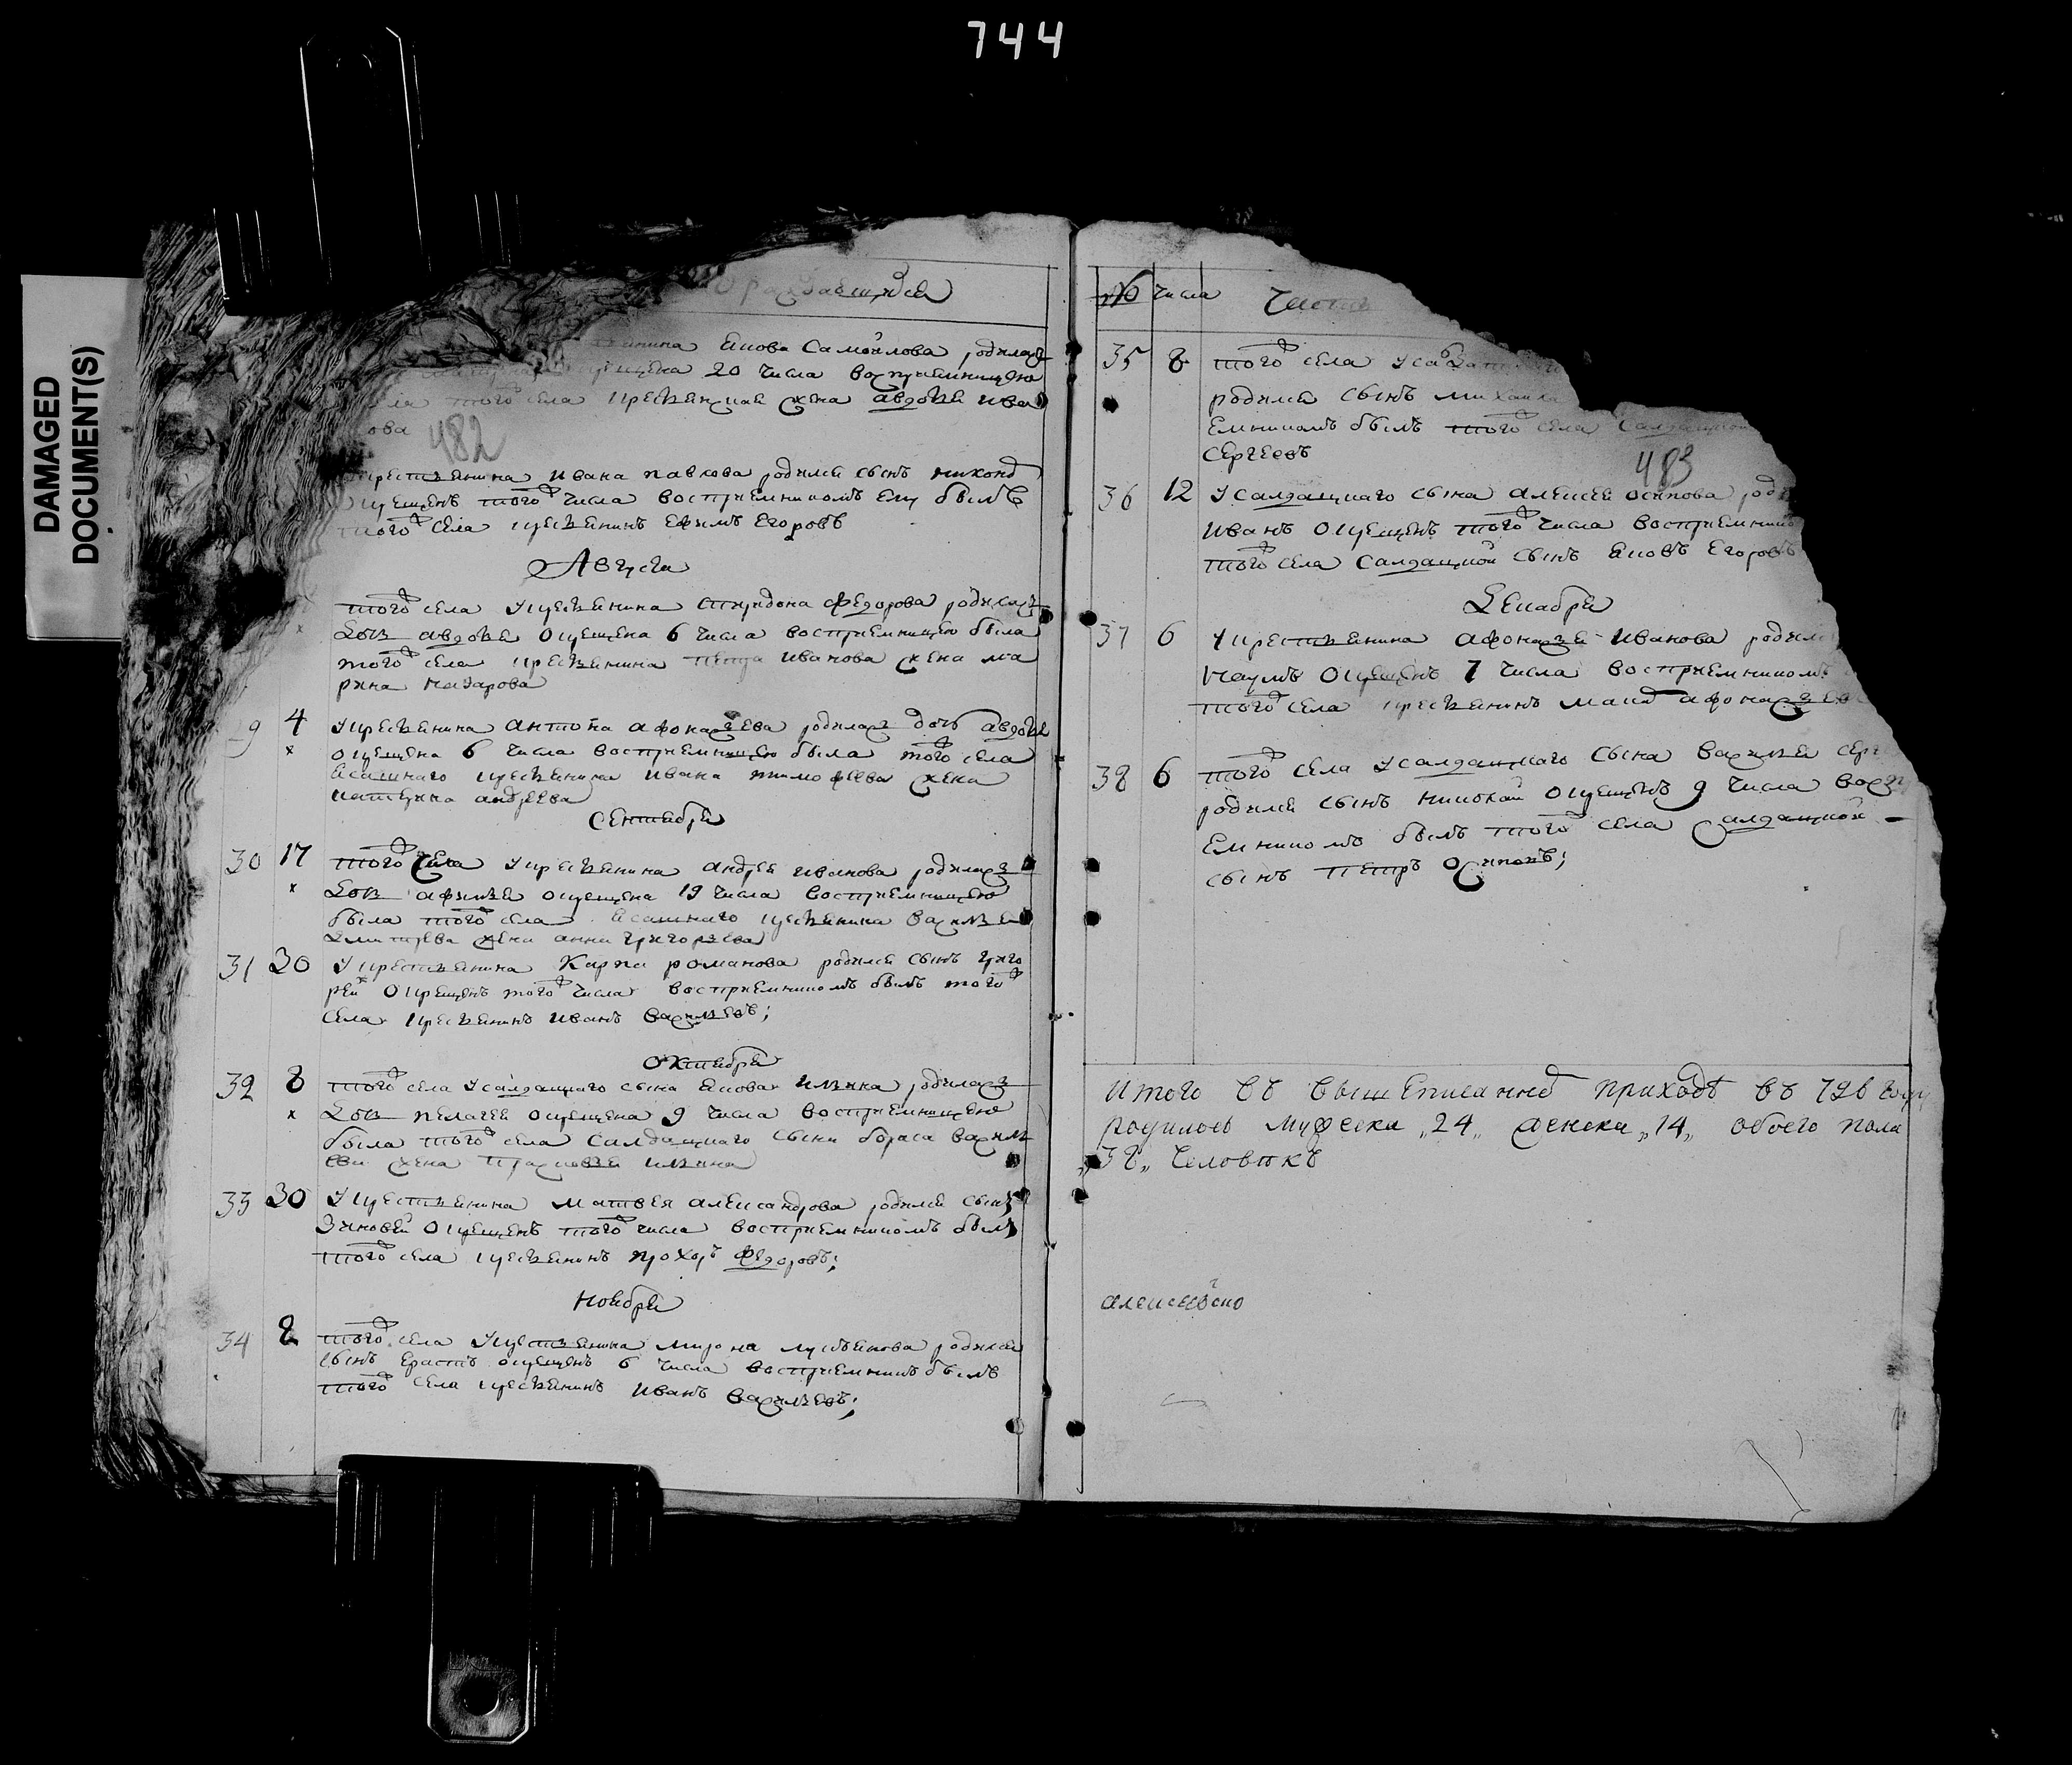 744
DAMAGED
DOCUMENT(S)
482
якова Самойлова родилась
крещена 20 числа восприемницею
того села крестьянская жена авдотья ива
нова
крестьянина ивана павлова родился сынъ никонъ
крещенъ того числа восприемникомъ ему былъ
того села крестьянинъ ефимъ егоровъ
Августа
того села у крестьянина спиридона федорова родилась
дочь авдотья крещена 6 числа восприемницею была
того села крестьянина петра иванова жена ма
рина назарова
9 4 у крестьянина антона афонасьева родилась дочь авдотья
крещена 6 числа восприемницею была того села
ясашнаго крестьянина ивана тимофеева жена
катерина андреева
Сентября
30 17 того села у крестьянина андрея иванова родилась
дочь афимья крещена 19 числа восприемницею
была того села ясашнаго крестьянина василья
дмитрева жена анна григорьева
31 30 у крестьянина Карпа романова родился сынъ григо
рей крещенъ того числа восприемникомъ былъ того
села крестьянинъ иванъ васильевъ;
октября
32 8 того села у салдацкаго сына якова ильина родилась
дочь пелагея крещена 9 числа восприемницею
была того села салдацкаго сына бориса василь
ева жена прасковья ильина
33 30 у крестьянина матвея александрова родился сынъ
зиновей крещенъ того числа восприемникомъ былъ
того села крестьянинъ прохоръ федоровъ;
ноября
34 2 того села у крестьянина мирона лукьянова родился
сынъ ерастъ крещенъ 6 числа восприемникъ былъ
того села крестьянинъ иванъ васильевъ;
№ числа
35 8 того села у
родился сынъ михаила
емникомъ былъ того села салдацкой
сергеевъ
483
36 12 у салдацкаго сына алексея осипова
иванъ крещенъ того числа восприемникомъ
того села салдацкой сынъ яковъ егоровъ
декабря
37 6 у крестьянина афонасья иванова родился
наумъ крещенъ 7 числа восприемникомъ
того села крестьянинъ
38 6 того села у салдацкаго сына василья
родился сынъ николай крещенъ 9 числа воспри
емникомъ былъ того села салдацкой
сынъ петръ осиповъ;
итого въ вышеписанной приходѣ въ 796 году
родилось мужеска „24„ женска „14„ обоего пола
„38„ человѣкъ